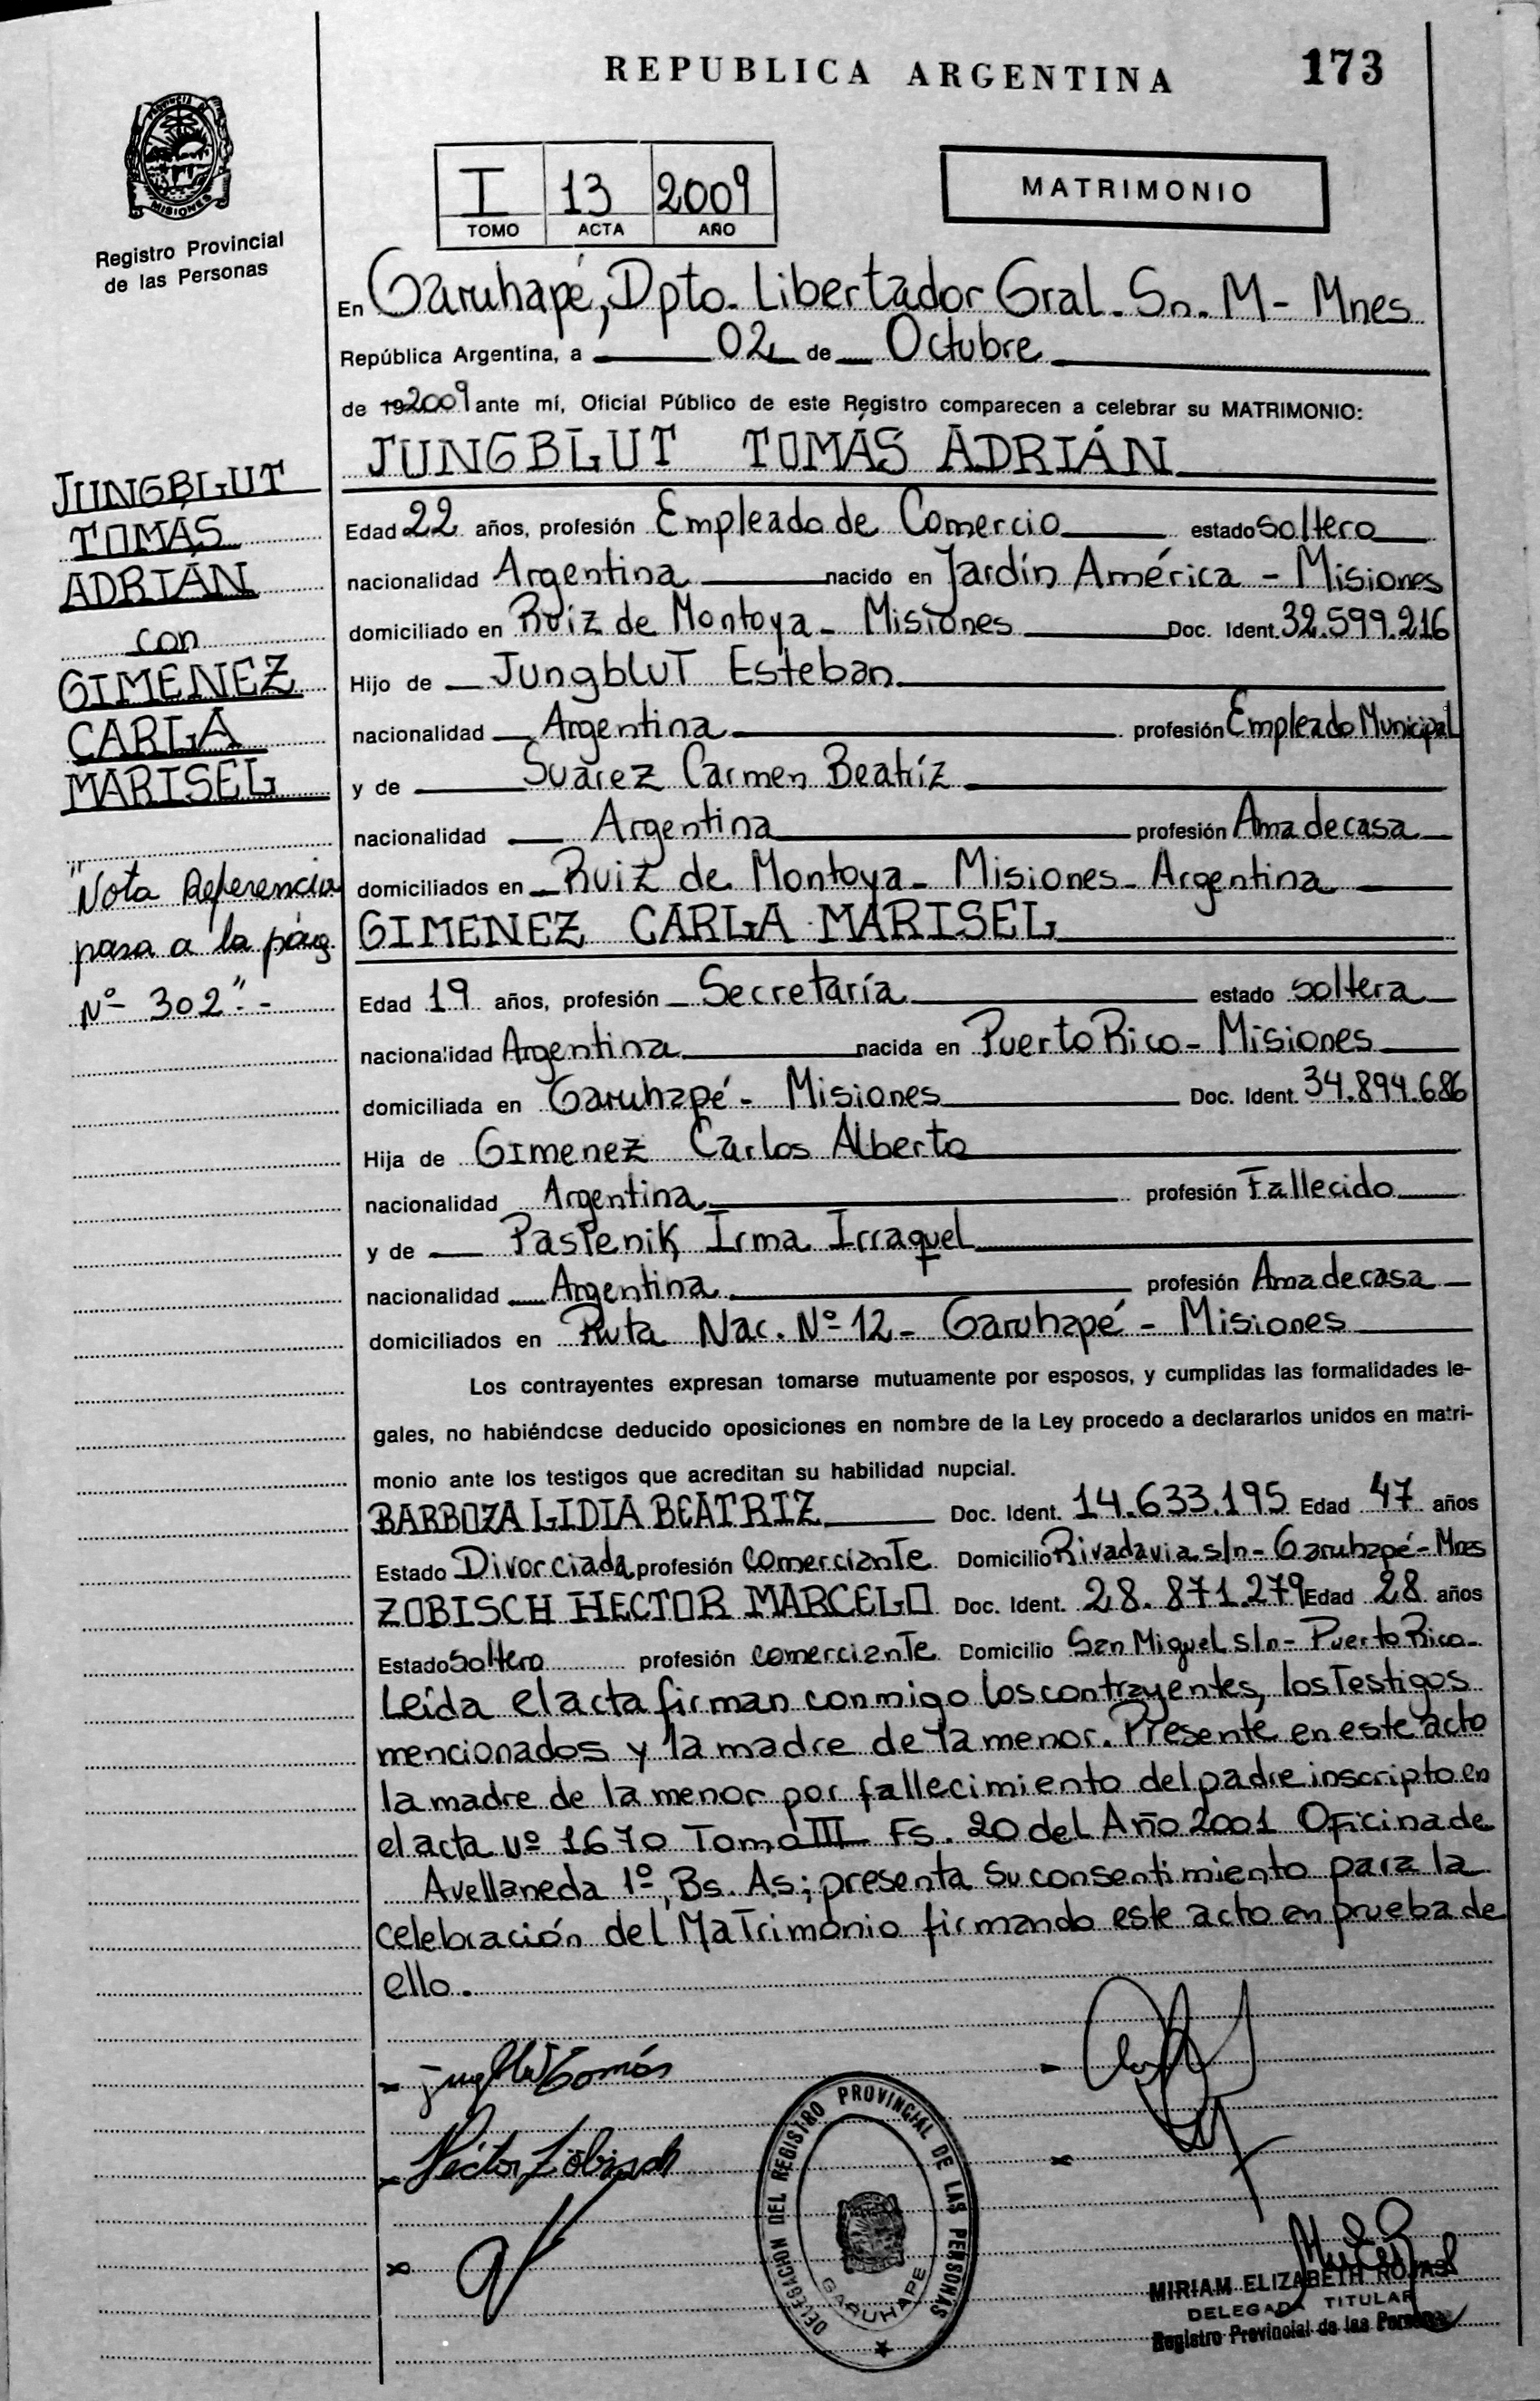 REPUBLICA ARGENTINA 173
PROVINCIA DE MISIONES
Registro Provincial
de las Personas
I 13 2009
TOMO ACTA AÑO
MATRIMONIO
En Garuhapé, Dpto. Libertador Gral. Sn. M- Mnes
República Argentina, a 02 de Octubre
de 19 2009 ante mí, Oficial Público de este Registro comparecen a celebrar su MATRIMONIO:
JUNGBLUT TOMÁS ADRIÁN
Edad 22 años, profesión Empleado de Comercio estado soltero
nacionalidad Argentina nacido en Jardín América - Misiones
domiciliado en Ruiz de Montoya - Misiones Doc. Ident. 32.599.216
Hijo de Jungblut Esteban
nacionalidad Argentina profesión Empleado Municipal
y de Suarez Carmen Beatríz
nacionalidad Argentina profesión Ama de casa
domiciliados en Ruiz de Montoya - Misiones - Argentina
GIMENEZ CARLA MARISEL
Edad 19 años, profesión Secretaría estado soltera
nacionalidad Argentina nacida en Puerto Rico - Misiones
domiciliada en Garuhapé - Misiones Doc. Ident. 34.894.686
Hija de Gimenez Carlos Alberto
nacionalidad Argentina profesión Fallecido
y de Pastenik Irma Irraquel
nacionalidad Argentina profesión Ama de casa
domiciliados en Ruta Nac. Nº 12 - Garuhapé - Misiones
Los contrayentes expresan tomarse mutuamente por esposos, y cumplidas las formalidades le-
gales, no habiéndose deducido oposiciones en nombre de la Ley procedo a declararlos unidos en matri-
monio ante los testigos que acreditan su habilidad nupcial.
BARBOZA LIDIA BEATRIZ Doc. Ident. 14.633.195 Edad 47 años
Estado Divorciada profesión comerciante Domicilio Rivadavia s/n - Garuhapé - Mnes
ZOBISCH HECTOR MARCELO Doc. Ident. 28.871.279 Edad 28 años
Estado Soltero profesión comerciante Domicilio San Miguel s/n - Puerto Rico -
Leída el acta firman conmigo los contrayentes, los Testigos
mencionados y la madre de la menor. Presente en este acto
la madre de la menor por fallecimiento del padre inscripto en
el acta Nº 1670 Tomo III Fs. 20 del Año 2001 Oficina de
Avellaneda 1º, Bs. As; presenta su consentimiento para la
celebración del Matrimonio firmando este acto en prueba de
ello.
JUNGBLUT
TOMÁS
ADRIÁN
con
GIMENEZ
CARLA
MARISEL
"Nota Referencia
pasa a la pág.
Nº 302".-
Tomás
Héctor Zobisch
DELEGACION DEL REGISTRO PROVINCIAL DE LAS PERSONAS
GARUHAPE
MIRIAM ELIZABETH ROJAS
DELEGADA TITULAR
Registro Provincial de las Personas